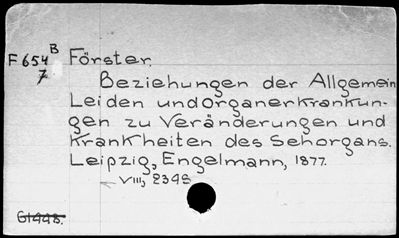 F 654 B Förster.
7
Beziehungen der Allgemein
Leiden und Organerkrankun-
gen zu Veränderungen und
Krankheiten des Sehorgans.
Leipzig, Engelmann, 1877.
VIII, 234S
G1448.